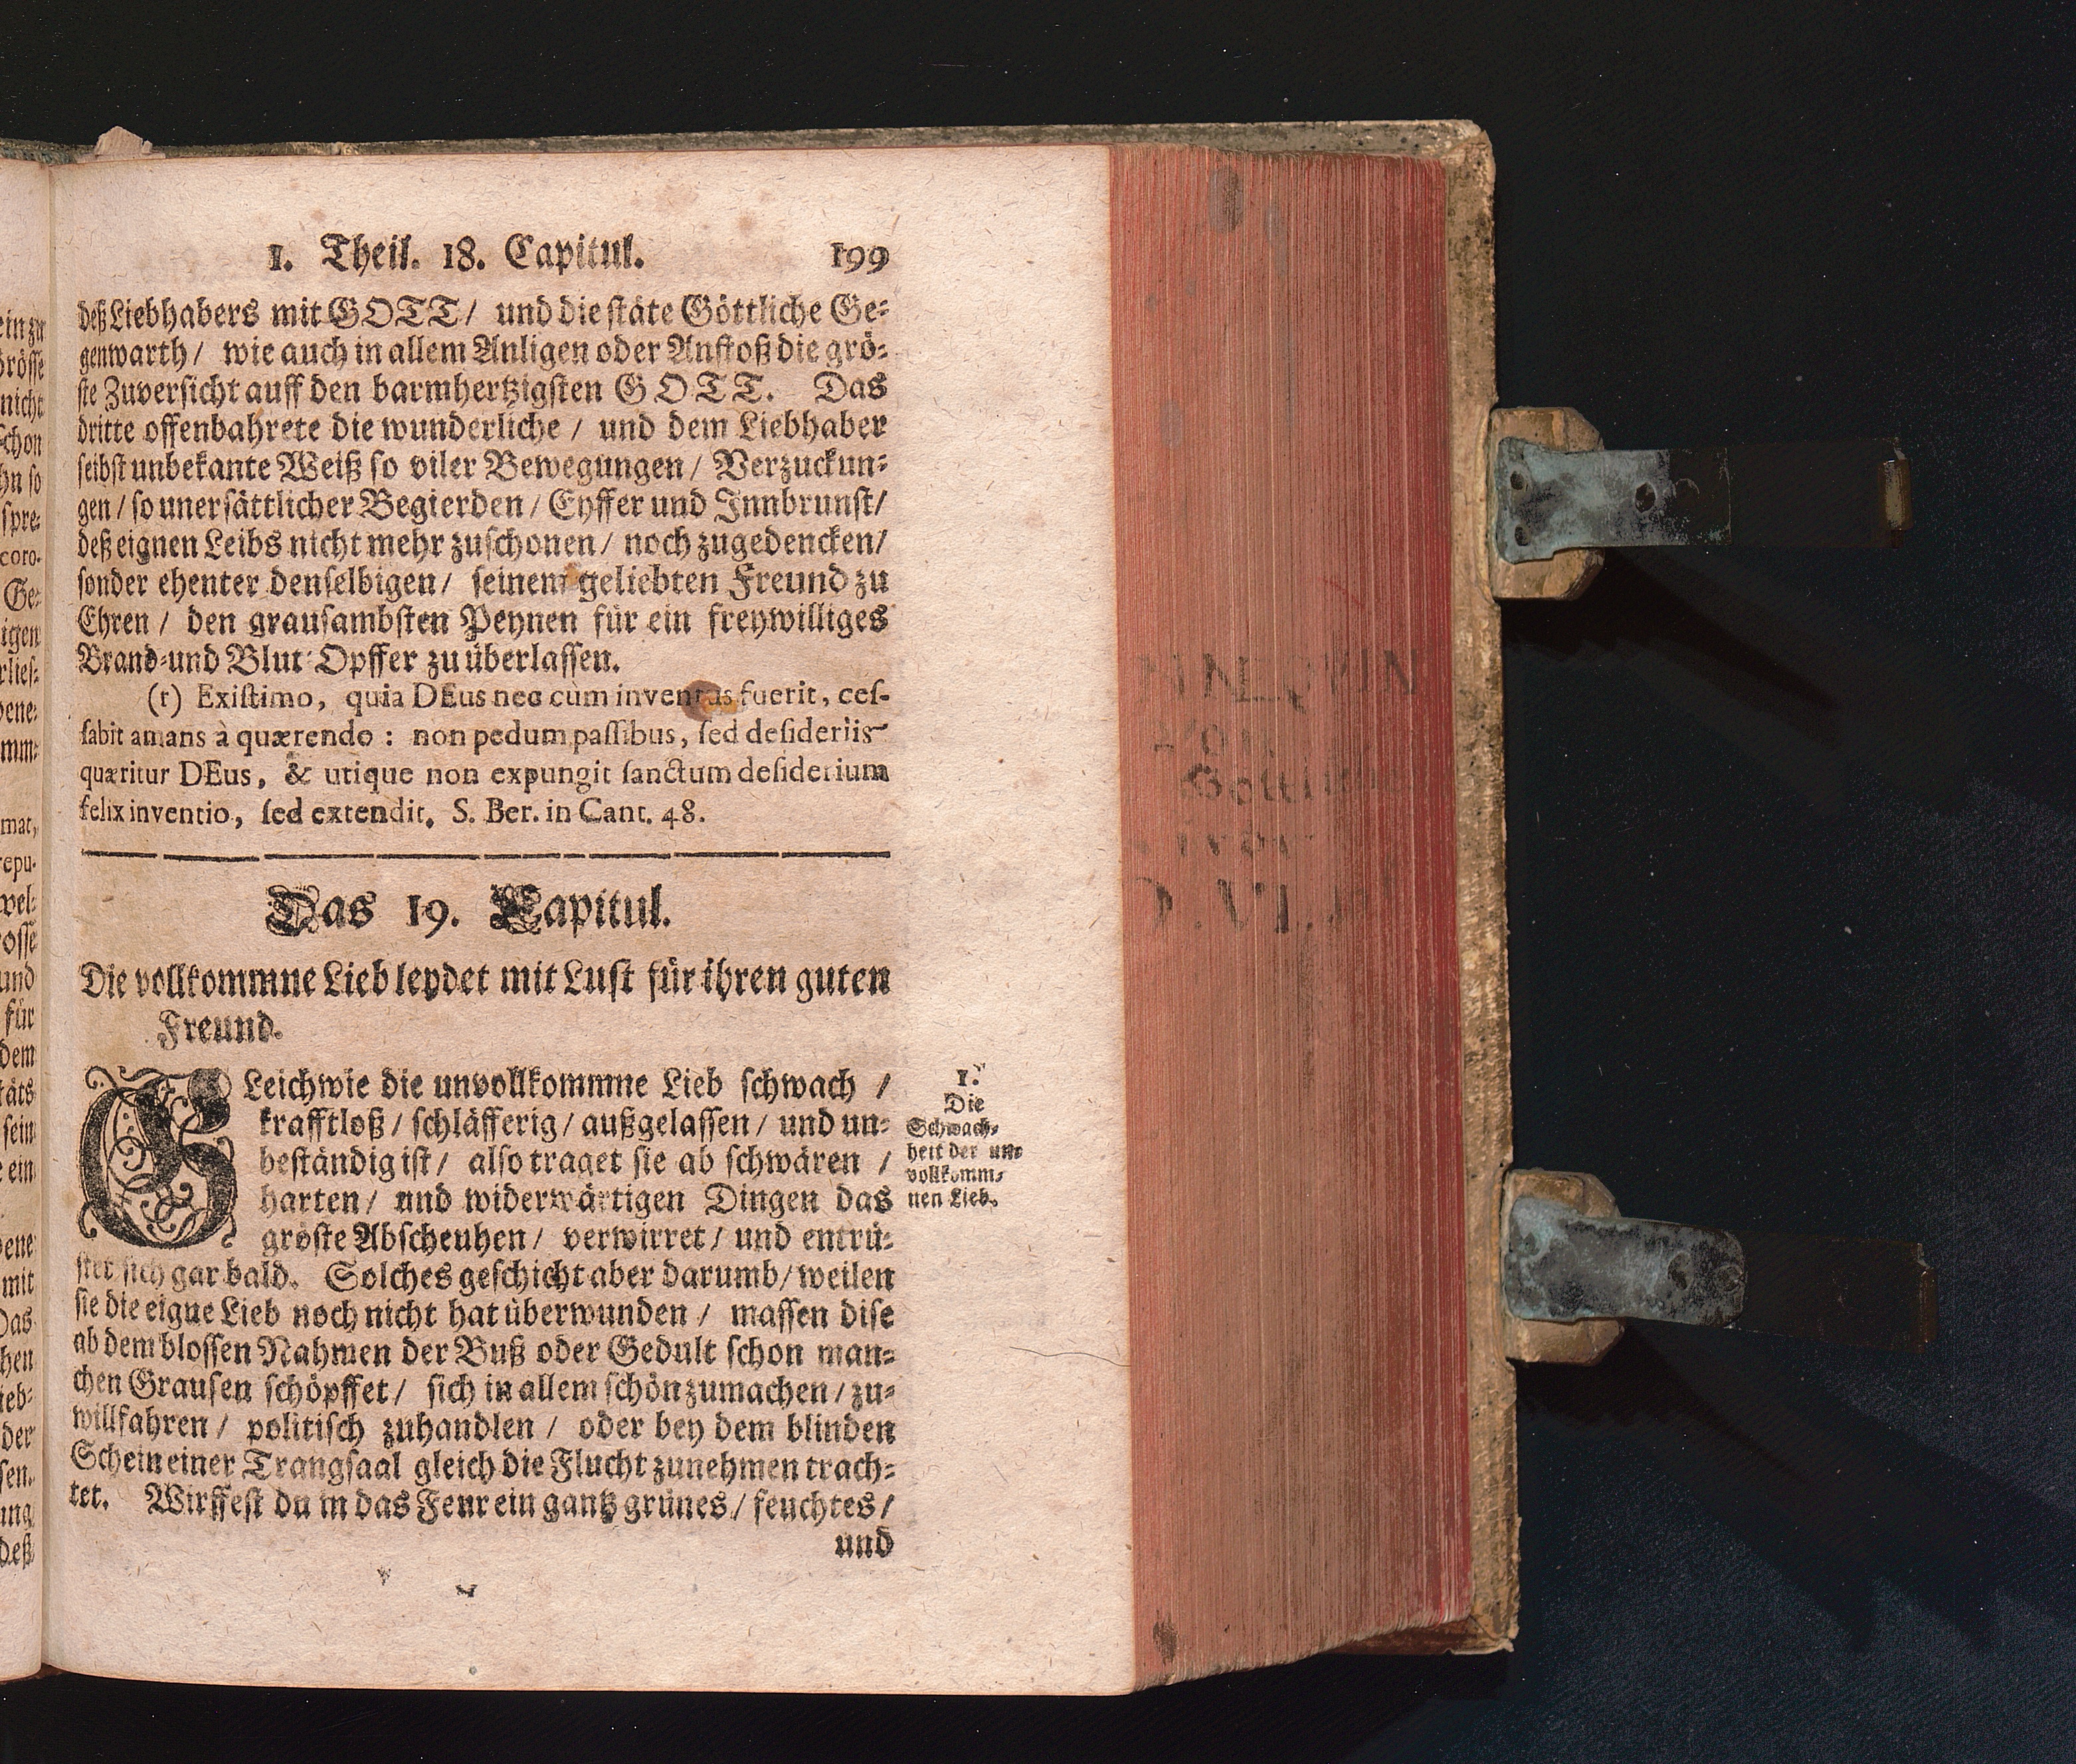 1. Theil. 18. Capitul. 199
deß Liebhabers mit GOTT / und die stäte Göttliche Ge-
genwarth / wie auch in allem Anligen oder Anstoß die grö-
ste Zuversicht auff den barmhertzigsten GOTT. Das
dritte offenbahrete die wunderliche / und dem Liebhaber
selbst unbekante Weiß so viler Bewegungen / Verzuckun-
gen / so unersättlicher Begierden / Eyffer und Innbrunst /
deß eignen Leibs nicht mehr zuschonen / noch zugedencken /
sonder ehenter denselbigen / seinem geliebten Freund zu
Ehren / den grausambsten Peynen für ein freywilliges
Brand- und Blut-Opffer zu überlassen.
(r) Existimo, quia DEus nec cùm inventus fuerit, ces-
sabit amans à quærendo : non pedum passibus, sed desideriis
quæritur DEus, & utique non expungit sanctum desiderium
felix inventio, sed extendit. S. Ber. in Cant. 48.
Das 19. Capitul.
Die vollkommne Lieb leydet mit Lust für ihren guten
Freund.
GLeichwie die unvollkommne Lieb schwach /
krafftloß / schläfferig / außgelassen / und un-
beständig ist / also traget sie ab schwären /
harten / und widerwärtigen Dingen das
gröste Abscheuhen / verwirret / und entrü-
stet sich gar bald. Solches geschicht aber darumb / weilen
sie die eigne Lieb noch nicht hat überwunden / massen dise
ab dem blossen Nahmen der Buß oder Gedult schon man-
chen Grausen schöpffet / sich in allem schön zumachen / zu-
willfahren / politisch zuhandlen / oder bey dem blinden
Schein einer Trangsaal gleich die Flucht zunehmen trach-
tet. Wirffest du in das Feur ein gantz grünes / feuchtes /
und
1.
Die
Schwach-
heit der un-
vollkomm-
nen Lieb.